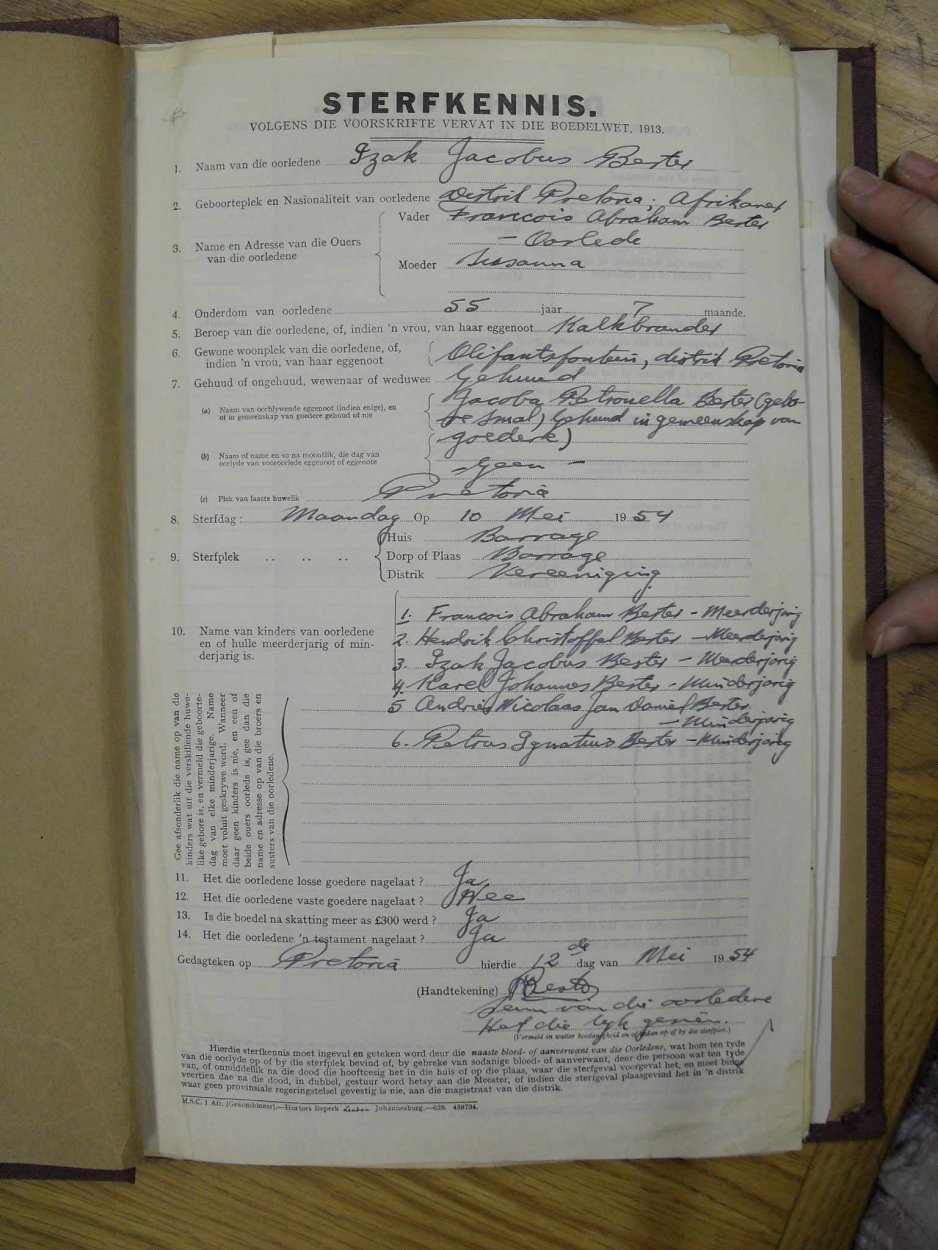 STERFKENNIS.
VOLGENS DIE VOORSKRIFTE VERVAT IN DIE BOEDELWET, 1913.
1. Naam van die oorledene Izak Jacobus Bester
2. Geboorteplek en Nasionaliteit van oorledene Distrik Pretoria; Afrikaner
3. Name en Adresse van die Ouers van die oorledene
Vader Francois Abraham Bester
- Oorlede
Moeder Susanna
4. Ouderdom van oorledene 55 jaar 7 maande.
5. Beroep van die oorledene, of, indien 'n vrou, van haar eggenoot Kalkbrander
6. Gewone woonplek van die oorledene, of, indien 'n vrou, van haar eggenoot Olifantsfontein, distrik Pretoria
7. Gehuud of ongehuud, wewenaar of weduwee Gehuud
(a) Naam van oorblywende eggenoot (indien enige), en of in gemeenskap van goedere gehuud of nie
Jacoba Petronella Bester (gebo-
re Smal, Gehuud in gemeenskap van
goedere)
(b) Naam of name en so na moontlik, die dag van oorlyde van vooroorlede eggenoot of eggenote
- Geen -
(c) Plek van laaste huwelik Pretoria
8. Sterfdag : Maandag Op 10 Mei 1954
9. Sterfplek .. .. ..
Huis Barrage
Dorp of Plaas Barrage
Distrik Vereeniging
10. Name van kinders van oorledene en of hulle meerderjarig of minderjarig is.
1. Francois Abraham Bester - Meerderjarig
2. Hendrik Christoffel Bester - Meerderjarig
3. Izak Jacobus Bester - Meerderjarig
4. Karel Johannes Bester - Minderjarig
5 Andries Nicolaas Jan Daniel Bester
- Minderjarig
6. Petrus Ignatius Bester - Minderjarig
Gee afsonderlik die name op van die
kinders wat uit die verskillende huwe-
like gebore is, en vermeld die geboorte-
dag van elke minderjarige. Name
moet voluit geskrywe word. Wanneer
daar geen kinders is nie, en een of
beide ouers oorlede is, gee dan die
name en adresse op van die broers en
susters van die oorledene.
11. Het die oorledene losse goedere nagelaat ? Ja
12. Het die oorledene vaste goedere nagelaat ? Nee
13. Is die boedel na skatting meer as £300 werd ? Ja
14. Het die oorledene 'n testament nagelaat ? Ja
Gedagteken op Pretoria hierdie 12de dag van Mei 1954
(Handtekening) Bester
Seun van die oorledene
Het die lyk gesien.
(Vermeld in watter hoedanigheid en of aldan op of by die sterfplek.)
Hierdie sterfkennis moet ingevul en geteken word deur die naaste bloed- of aanverwant van die Oorledene, wat hom ten tyde
van die oorlyde op of by die sterfplek bevind of, by gebreke van sodanige bloed- of aanverwant, deur die persoon wat ten tyde
van, of onmiddellik na die dood die hooftoesig het in die huis of op die plaas, waar die sterfgeval voorgeval het, en moet binne
veertien dae na die dood, in dubbel, gestuur word hetsy aan die Meester, of indien die sterfgeval plaasgevind het in 'n distrik
waar geen provinsiale regeringstelsel gevestig is nie, aan die magistraat van die distrik.
M.S.C. 1 Afr. (Gekombineer).—Hortors Beperk Johannesburg.—628. 459734.